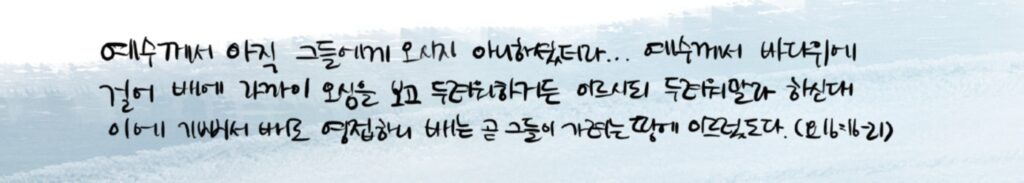 예수께서 아직 그들에게 오시지 아니하셨더라... 예수께서 바다위에
걸어 배에 가까이 오심을 보고 두려워하거든 이르시되 두려워말라 하신대
이에 기뻐서 바로 영접하니 배는 곧 그들이 가려는 땅에 이르렀도다. (요6:16-21)